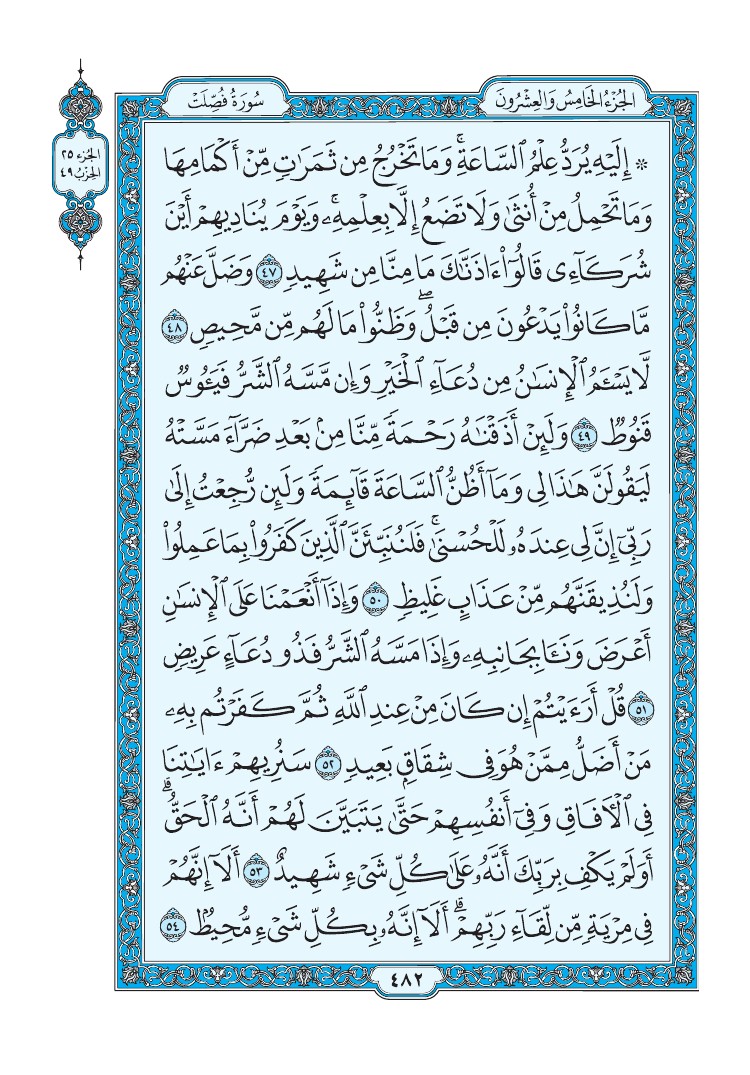 الجُزْءُ الخَامِسُ وَالعِشْرُونَ
سُورَةُ فُصِّلَتْ
الجزء ٢٥
الحزب ٤٩
۞ إِلَيْهِ يُرَدُّ عِلْمُ ٱلسَّاعَةِۚ وَمَا تَخْرُجُ مِن ثَمَرَٰتٖ مِّنْ أَكْمَامِهَا
وَمَا تَحْمِلُ مِنْ أُنثَىٰ وَلَا تَضَعُ إِلَّا بِعِلْمِهِۦۚ وَيَوْمَ يُنَادِيهِمْ أَيْنَ
شُرَكَآءِى قَالُوٓاْ ءَاذَنَّٰكَ مَا مِنَّا مِن شَهِيدٖ ٤٧ وَضَلَّ عَنْهُم
مَّا كَانُواْ يَدْعُونَ مِن قَبْلُۖ وَظَنُّواْ مَا لَهُم مِّن مَّحِيصٖ ٤٨
لَّا يَسْـَٔمُ ٱلْإِنسَٰنُ مِن دُعَآءِ ٱلْخَيْرِ وَإِن مَّسَّهُ ٱلشَّرُّ فَيَـُٔوسٞ
قَنُوطٞ ٤٩ وَلَئِنْ أَذَقْنَٰهُ رَحْمَةٗ مِّنَّا مِنۢ بَعْدِ ضَرَّآءَ مَسَّتْهُ
لَيَقُولَنَّ هَٰذَا لِى وَمَآ أَظُنُّ ٱلسَّاعَةَ قَآئِمَةٗ وَلَئِن رُّجِعْتُ إِلَىٰ
رَبِّىٓ إِنَّ لِى عِندَهُۥ لَلْحُسْنَىٰۚ فَلَنُنَبِّئَنَّ ٱلَّذِينَ كَفَرُواْ بِمَا عَمِلُواْ
وَلَنُذِيقَنَّهُم مِّنْ عَذَابٍ غَلِيظٖ ٥٠ وَإِذَآ أَنْعَمْنَا عَلَى ٱلْإِنسَٰنِ
أَعْرَضَ وَنَـَٔا بِجَانِبِهِۦ وَإِذَا مَسَّهُ ٱلشَّرُّ فَذُو دُعَآءٍ عَرِيضٖ
٥١ قُلْ أَرَءَيْتُمْ إِن كَانَ مِنْ عِندِ ٱللَّهِ ثُمَّ كَفَرْتُم بِهِۦ
مَنْ أَضَلُّ مِمَّنْ هُوَ فِى شِقَاقِۭ بَعِيدٖ ٥٢ سَنُرِيهِمْ ءَايَٰتِنَا
فِى ٱلْأٓفَاقِ وَفِىٓ أَنفُسِهِمْ حَتَّىٰ يَتَبَيَّنَ لَهُمْ أَنَّهُ ٱلْحَقُّۗ
أَوَلَمْ يَكْفِ بِرَبِّكَ أَنَّهُۥ عَلَىٰ كُلِّ شَىْءٖ شَهِيدٌ ٥٣ أَلَآ إِنَّهُمْ
فِى مِرْيَةٖ مِّن لِّقَآءِ رَبِّهِمْۗ أَلَآ إِنَّهُۥ بِكُلِّ شَىْءٖ مُّحِيطُۢ ٥٤
٤٨٢